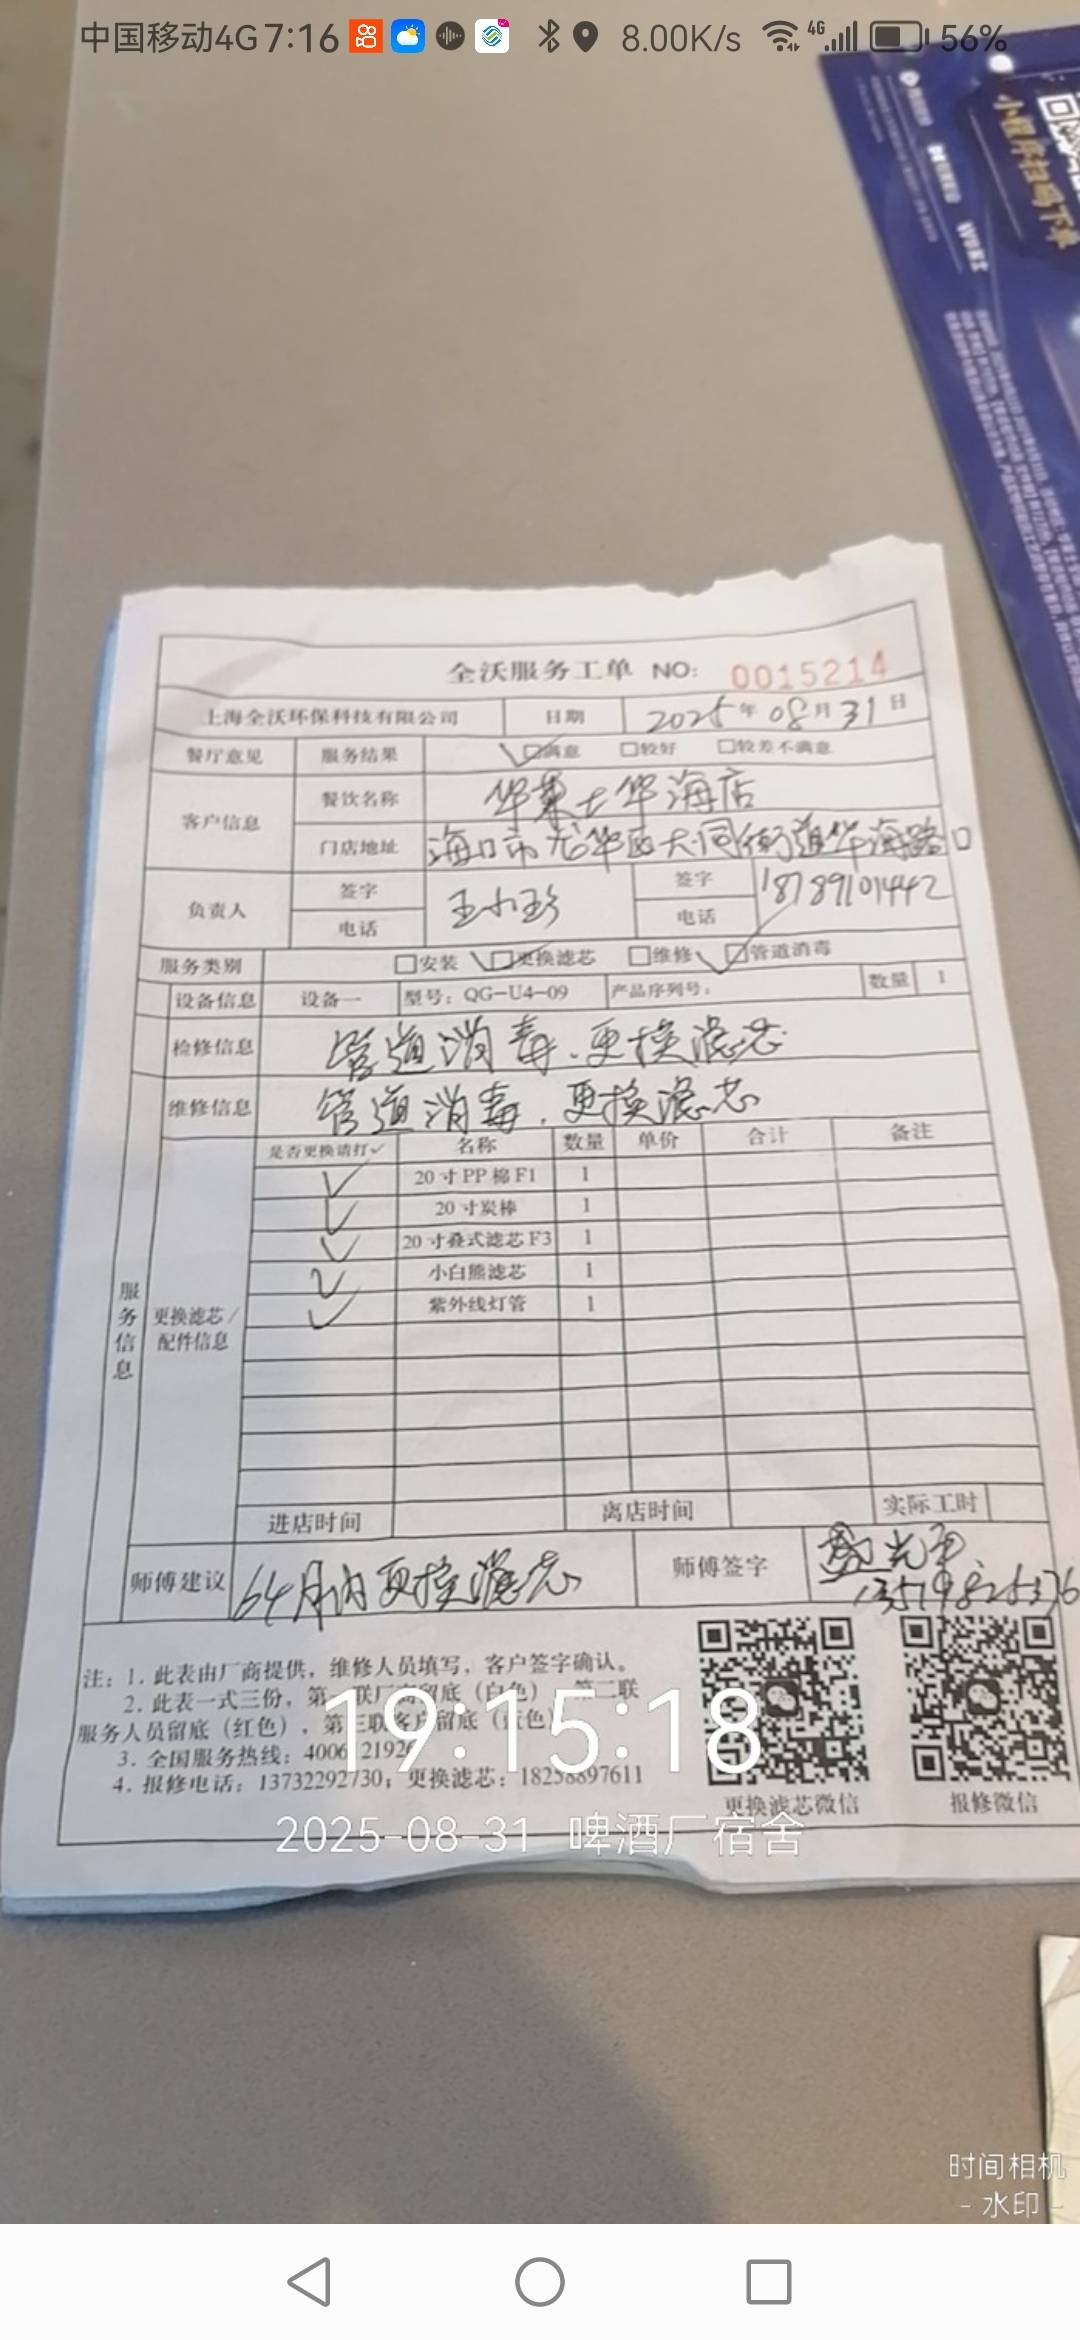 中国移动4G 7:16 8.00K/s 4G 56%
小程序扫码下单
全沃服务工单 NO: 0015214
上海全沃环保科技有限公司 日期 2025年08月31日
餐厅意见 服务结果 满意 较好 较差不满意
客户信息 餐饮名称 华莱士华海店
门店地址 海口市龙华区大同街道华海路口
负责人 签字 王小珍 签字 18789101442
电话 电话
服务类别 安装 更换滤芯 维修 管道消毒
设备信息 设备一 型号：QG-U4-09 产品序列号： 数量 1
检修信息 管道消毒.更换滤芯
维修信息 管道消毒.更换滤芯
是否更换请打✓ 名称 数量 单价 合计 备注
✓ 20寸PP棉F1 1
✓ 20寸炭棒 1
✓ 20寸叠式滤芯F3 1
✓ 小白熊滤芯 1
✓ 紫外线灯管 1
服务信息
更换滤芯/
配件信息
进店时间 离店时间 实际工时
师傅建议 6个月内更换滤芯 师傅签字
注：1. 此表由厂商提供，维修人员填写，客户签字确认。
2. 此表一式三份，第一联厂商留底（白色） 第二联
服务人员留底（红色），第三联客户留底
3. 全国服务热线：
4. 报修电话：13732292730；更换滤芯：18258897611
更换滤芯微信 报修微信
19:15:18
2025-08-31 啤酒厂宿舍
时间相机
- 水印 -